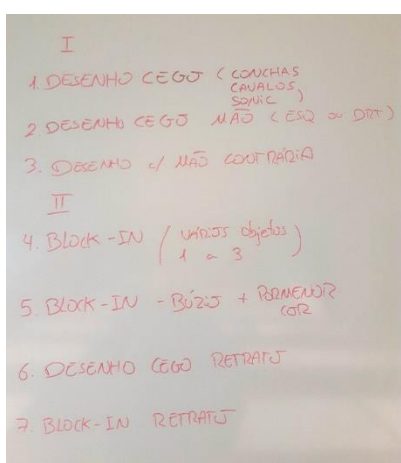 I
1. DESENHO CEGO ( CONCHAS
CAVALOS
SONIC )
2. DESENHO CEGO MÃO ( ESQ OU DRT )
3. DESENHO C/ MÃO CONTRÁRIA
II
4. BLOCK-IN ( VÁRIOS objetos )
1 a 3
5. BLOCK-IN - BÚZIO + PORMENOR
COR
6. DESENHO CEGO RETRATO
7. BLOCK-IN RETRATO